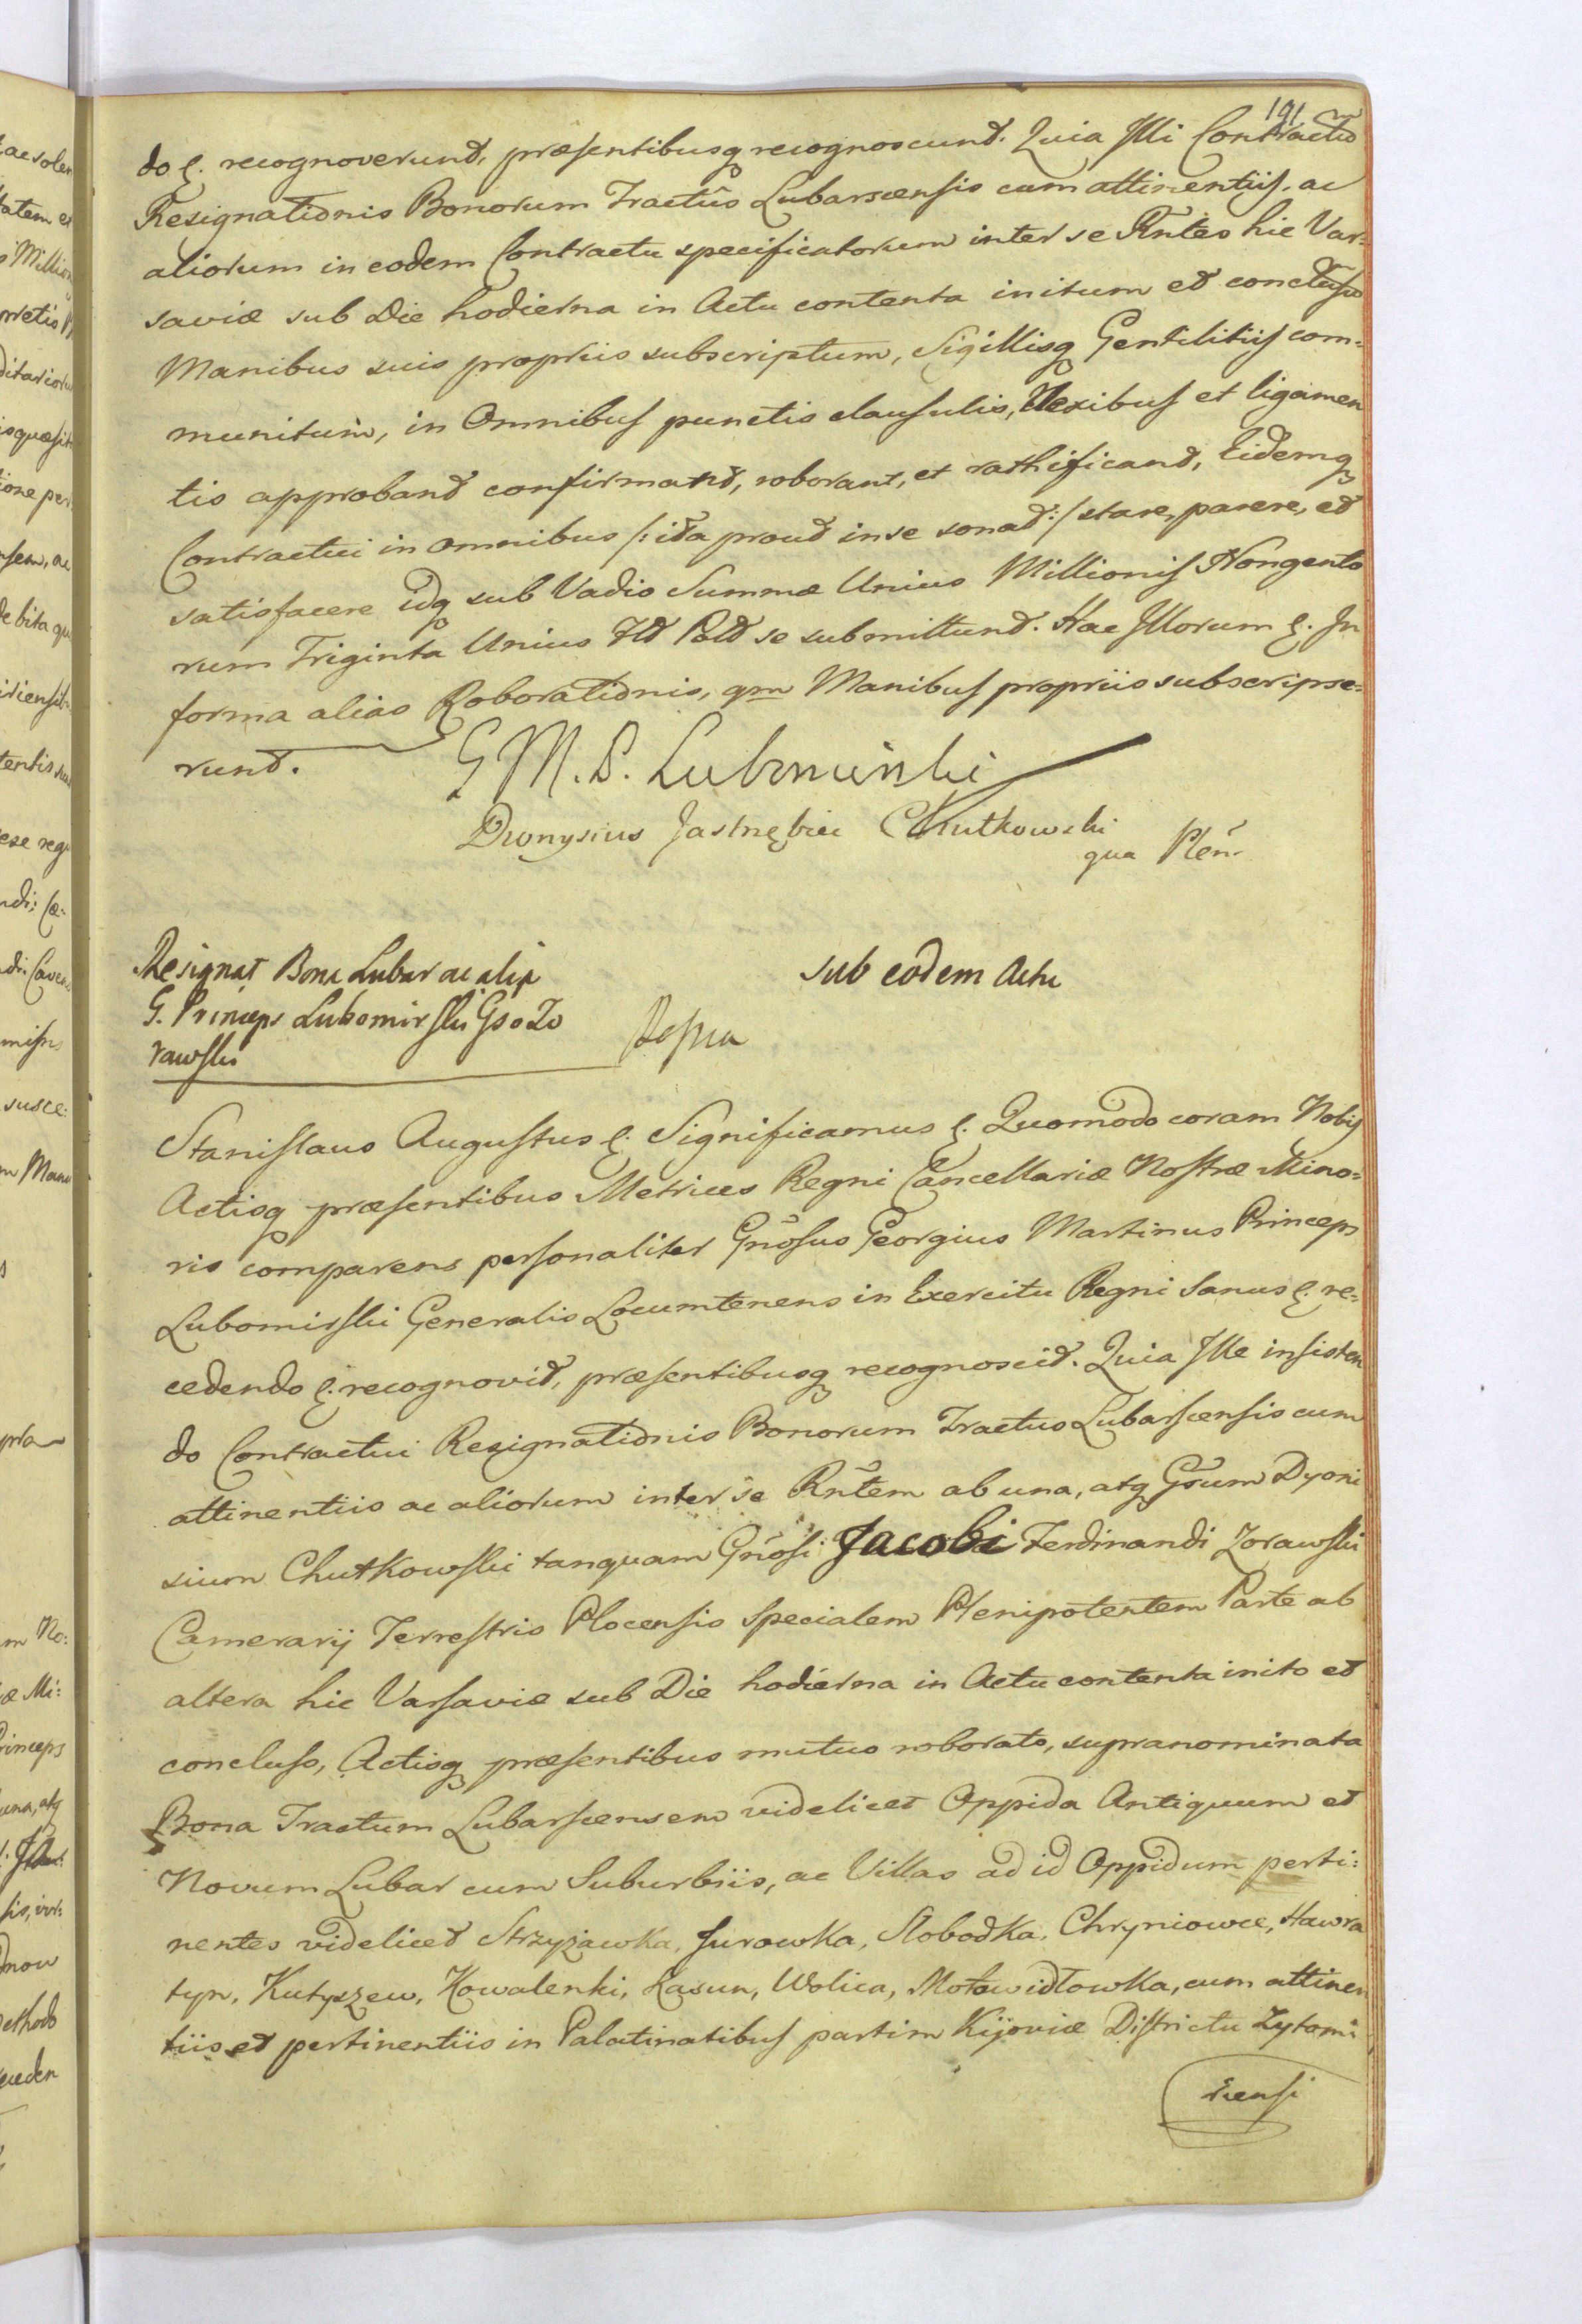 191
do &. recognoverunt, præsentibusq recognoscunt. Quia Illi Contractũ
Resignationis Bonorum Tractûs Lubarscensis cum attinentiis, ac
aliorum in eodem Contractu specificatorum inter se Rñtes hic Var=
saviæ sub Die hodierna in Actu contenta initum et conclusũ
Manibus suis propriis subscriptum, Sigillisq Gentilitiis com=
munitum, in Omnibus punctis clausulis, Nexibus et ligamen
tis approbant confirmant, roborant, et rathificant, Eidemq
Contractui in omnibus /: ita prout in se sonat :/ stare, parere, et
satisfacere idq sub Vadio Summæ Unius Millionis Nongento
rum Triginta Unius Fld Pold se submittunt. Hac Illorum &. In
forma alias Roborationis, qm Manibus propriis subscripse=
runt.
G M. P. Lubomirski
Dionysius Jastrzębiec Chutkowski
qua Plen̄.
Resignat Bona Lubar ac alia
sub eodem Actu
G. Princeps Lubomirski Gso Zo
rawski
Stanislaus Augustus &. Significamus &. Quomodo coram Nobis
Actisq præsentibus Metrices Regni Cancellariæ Nostræ Mino=
ris comparens personaliter Gnosus Georgius Martinus Princeps
Lubomirski Generalis Locumtenens in Exercitu Regni Sanus &. re=
cedendo &. recognovit, præsentibusq recognoscit. Quia Ille insisten
do Contractui Resignationis Bonorum Tractus Lubarscensis cum
attinentiis ac aliorum inter se Rñtem ab una, atq Gsum Dyoni
sium Chutkowski tanquam Gnosi Jacobi Ferdinandi Zorawski
Camerarij Terrestris Plocensis Specialem Plenipotentem Parte ab
altera hic Varsaviæ sub Die hodierna in Actu contenta inito et
concluso, Actisq præsentibus mutuo roborato, supranominata
Bona Tractum Lubarscensem videlicet Oppida Antiquum et
Novum Lubar cum Suburbiis, ac Villas ad id Oppidum perti=
nentes videlicet Strzyzawka, Jurowka, Slobodka, Chryniowce, Hawra
tyn, Kutyszew, Kowalenki, Kasun, Wolica, Motowidłowka, cum attinen
tiis et pertinentiis in Palatinatibus partim Kijoviæ Districtu Zytomi
riensi